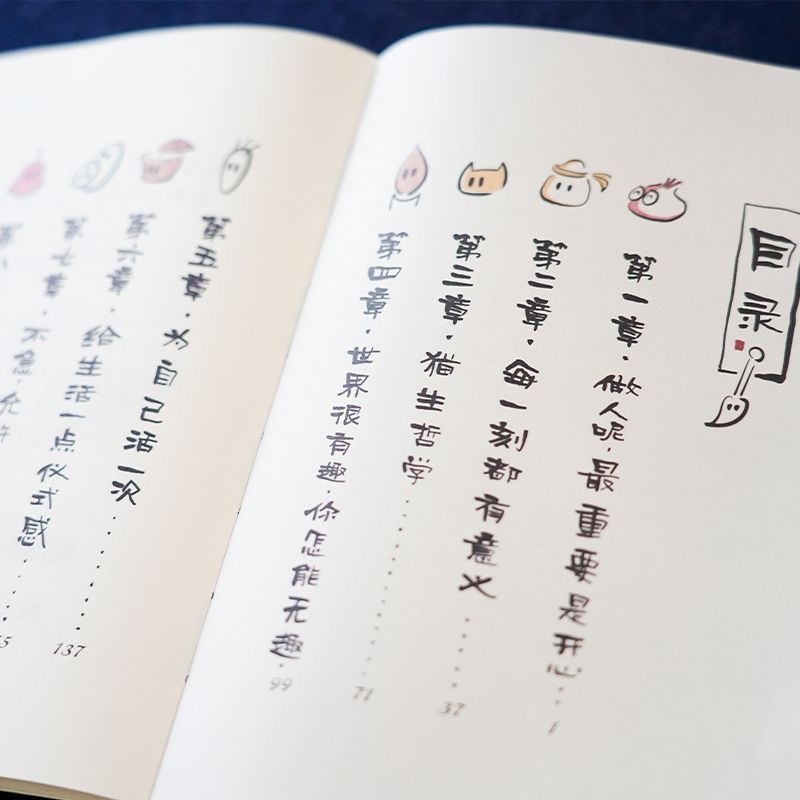 目录
第一章·做人呢,最重要是开心··· 1
第二章·每一刻都有意义······ 37
第三章·猫生哲学············ 71
第四章·世界很有趣,你怎能无趣· 99
第五章·为自己活一次·········· 137
第六章·给生活一点仪式感······
第七章·不急,允许
第八